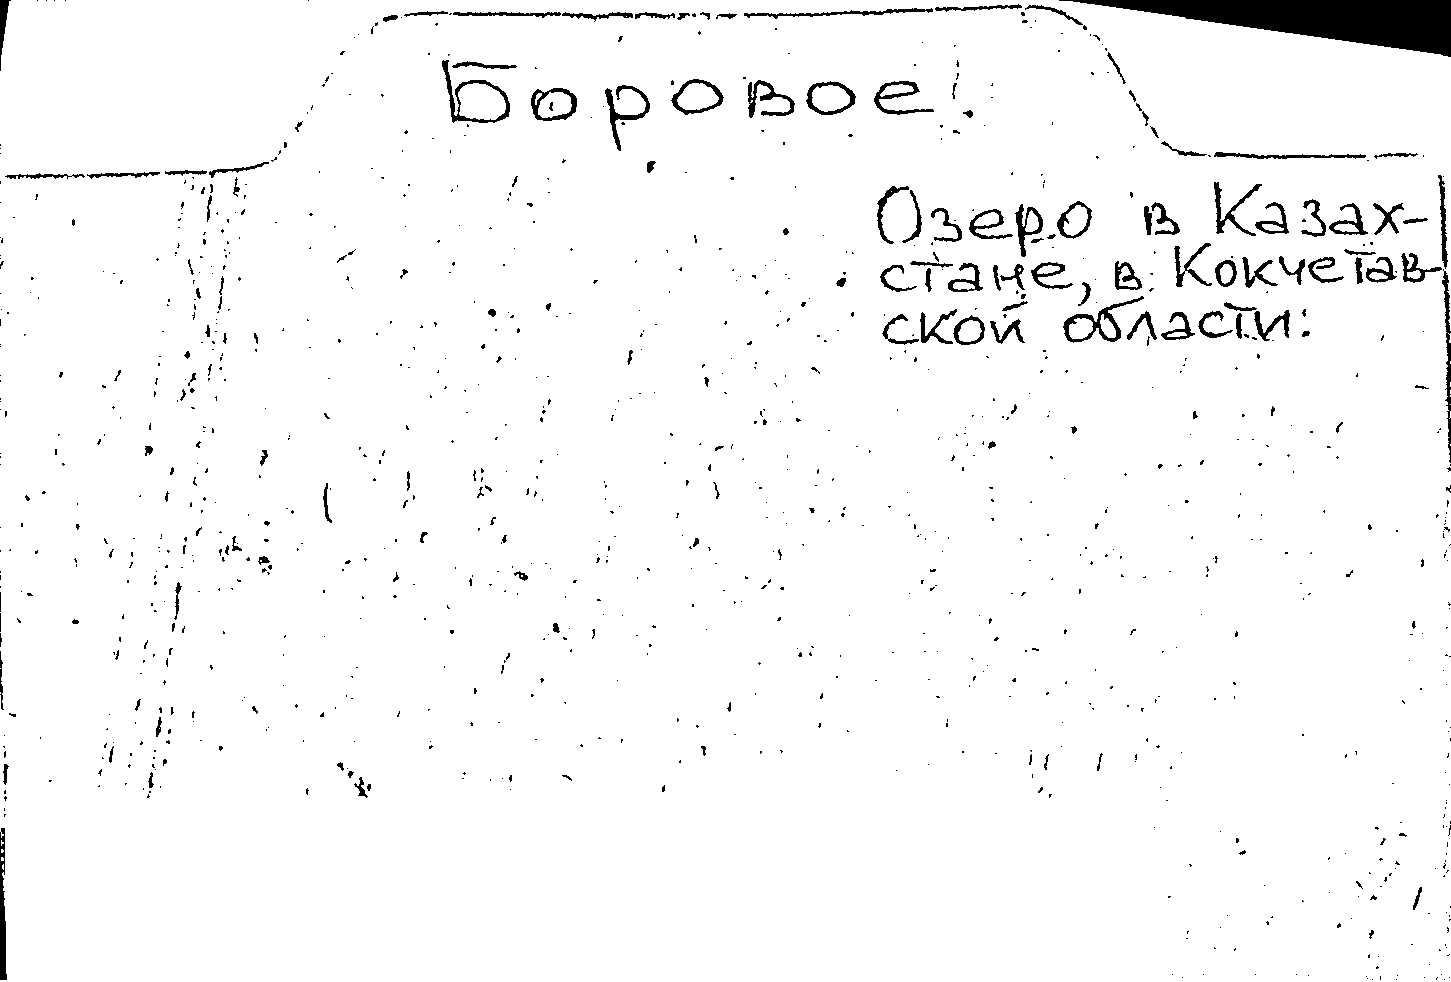 Боровое.
Озеро в Казах-
стане, в Кокчетав-
ской области.